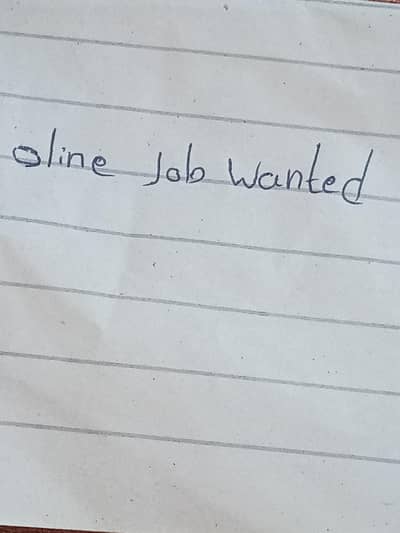 oline Job Wanted